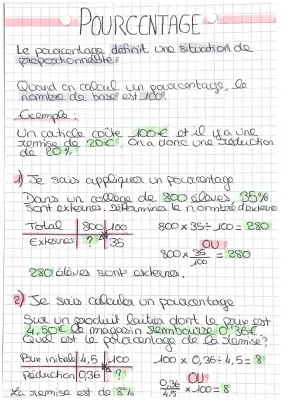 POURCENTAGE
Le pourcentage définit une situation de
proportionnalité.
Quand on calcul un pourcentage, le
nombre de base est 100.
Exemple:
Un article coûte 100€ et il y a une
remise de 20€. On a donc une réduction
de 20%.
1) Je sais appliquer un pourcentage
Dans un collège de 800 élèves, 35%
sont externes. Détermine le nombre d'externes
Total 800 100 800 x 35 ÷ 100 = 280
Externes ? 35 OU
800 x 35/100 = 280
280 élèves sont externes.
2) Je sais calculer un pourcentage
Sur un produit laitier dont le prix est
4,50€ le magasin rembourse 0,36€
Quel est le pourcentage de la remise?
Prix initiale 4,5 100 100 x 0,36 ÷ 4,5 = 8
Réduction 0,36 ? OU
La remise est de 8% 0,36/4,5 x 100 = 8